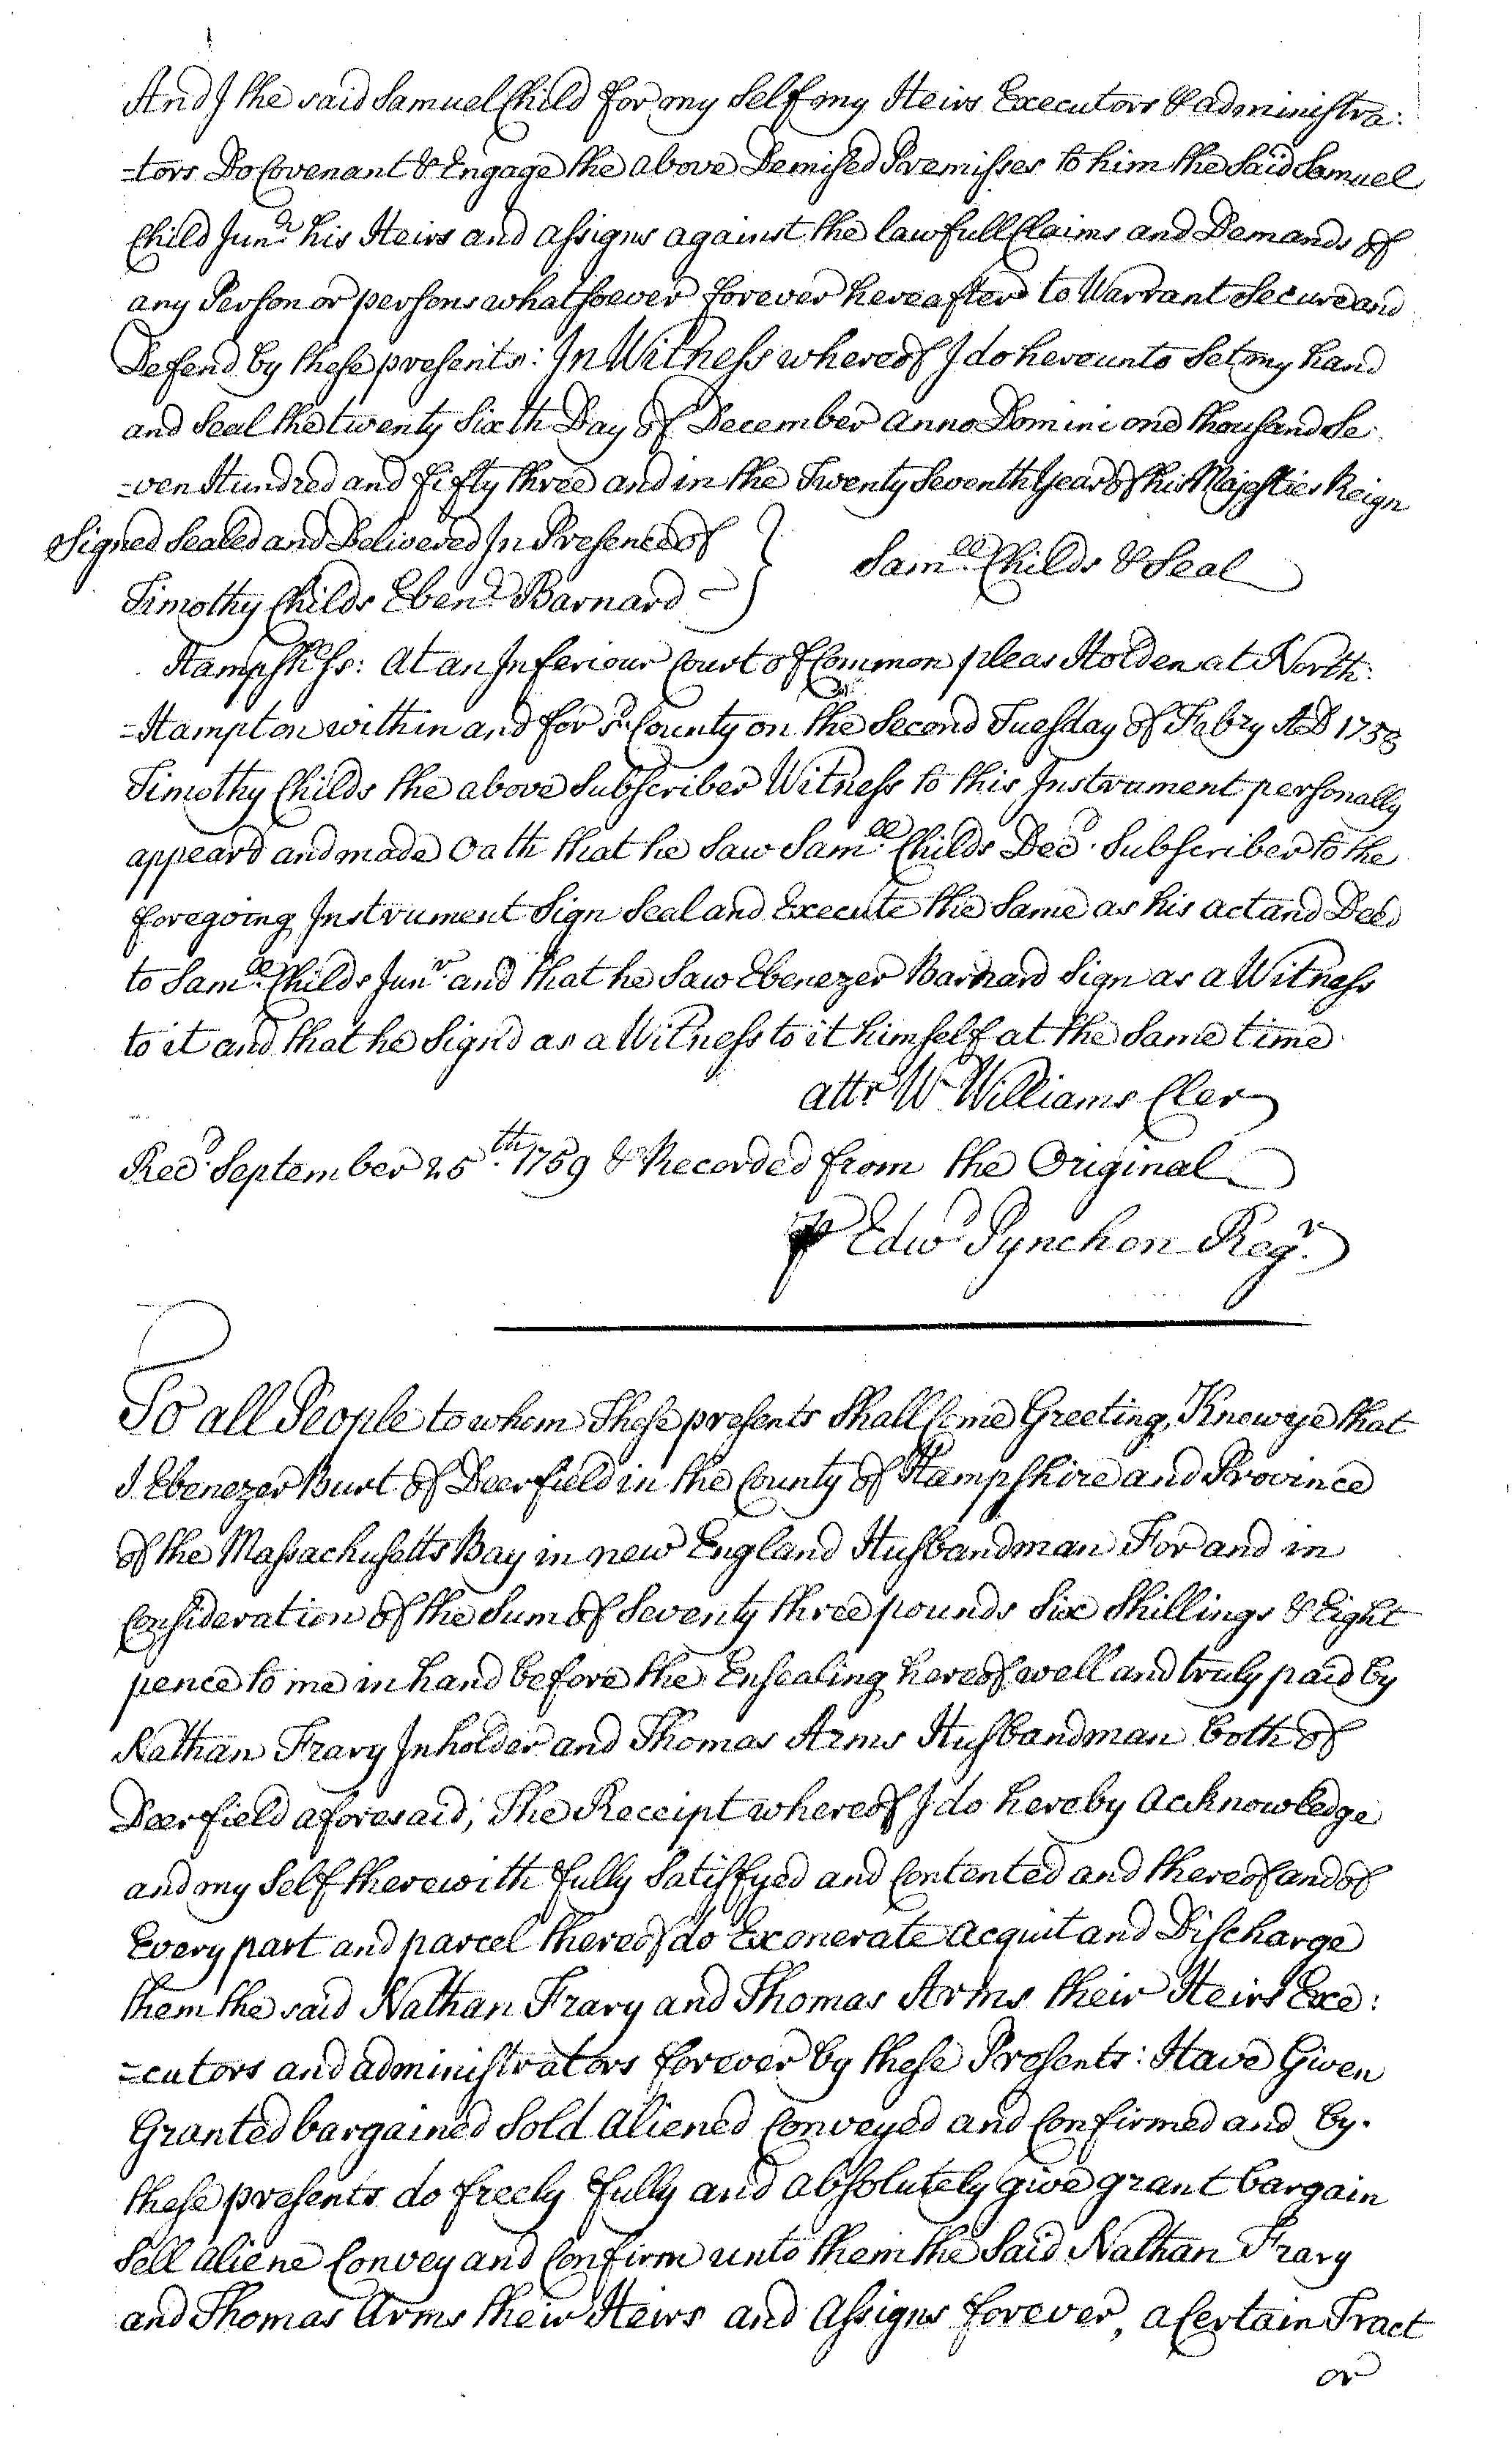 And I the said Samuel Child for my Self my Heirs Executors & administra:
-tors Do Covenant & Engage the above Demised Premisses to him the Said Samuel
Child Junr his Heirs and assigns against the lawfull Claims and Demands of
any Person or persons whatsoever forever hereafter to Warrant Secure and
Defend by these presents: In Witness whereof I do hereunto Set my hand
and Seal the twenty Sixth Day of December Anno Domini one thousand Se:
-ven Hundred and fifty three and in the Twenty Seventh Year of his Majesties Reign
Signed Sealed and Delivered In Presence of
Timothy Childs Ebenr Barnard
Samll Childs & Seal
Hampshr Ss: At an Inferiour Court of Common pleas Holden at North:
-Hampton within and for sd County on the Second Tuesday of Febry AD 1758
Timothy Childs the above Subscriber Witness to this Instrument personally
appeard and made Oath that he Saw Samll Childs Decd Subscriber to the
foregoing Instrument Sign Seal and Execute the Same as his act and Deed
to Samll Childs Junr and that he Saw Ebenezer Barnard Sign as a Witness
to it and that he Sign'd as a Witness to it himself at the Same time
attr W Williams Cler
Recd September 25th 1759 & Recorded from the Original
P Edwd Pynchon Regr
To all People to whom These presents Shall Come Greeting, Know ye that
I Ebenezer Burt of Deerfield in the County of Hampshire and Province
of the Massachusetts Bay in new England Husbandman For and in
Consideration of the Sum of Seventy three pounds Six Shillings & Eight
pence to me in hand before the Ensealing hereof well and truly paid by
Nathan Frary Inholder and Thomas Arms Husbandman both of
Deerfield aforesaid; The Receipt whereof I do hereby Acknowledge
and my Self therewith fully Satisfyed and Contented and thereof and of
Every part and parcel thereof do Exonerate acquit and Discharge
them the said Nathan Frary and Thomas Arms their Heirs Exe:
-cutors and administrators forever by these Presents: Have Given
Granted bargained Sold aliened Conveyed and Confirmed and by
these presents do freely fully and absolutely give grant bargain
Sell aliene Convey and Confirm unto them the Said Nathan Frary
and Thomas Arms their Heirs and Assigns forever, a Certain Tract
or